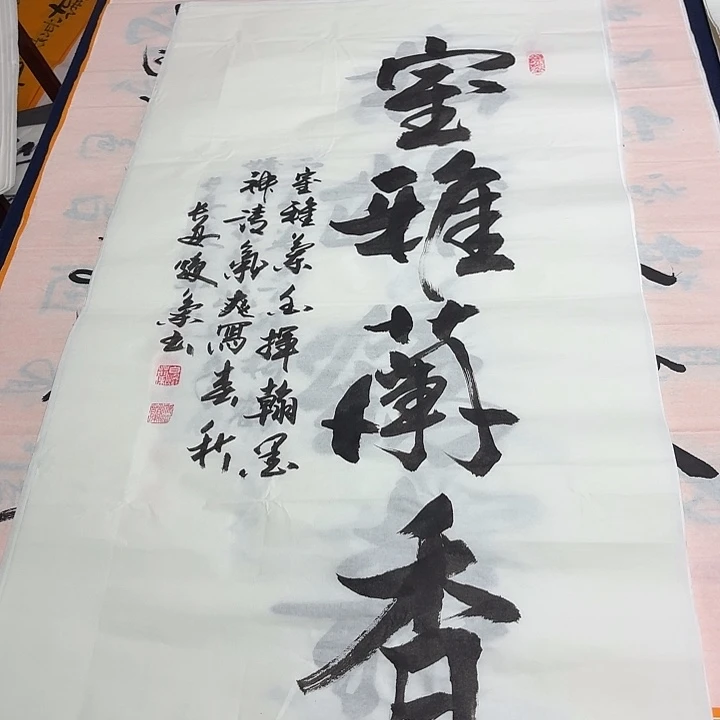 室雅蘭香
室雅蘭香揮翰墨
神清氣爽寫春秋